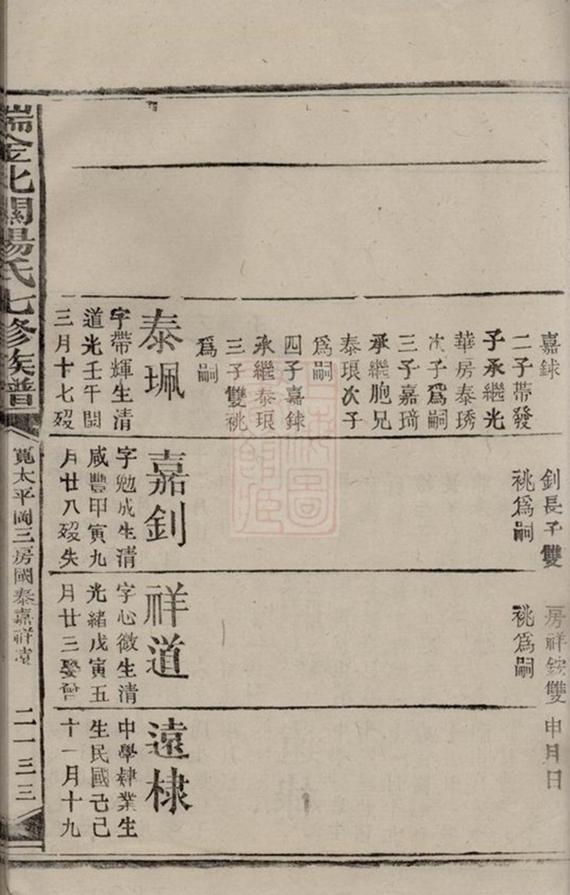 嘉銶
二子帶發
子承繼光
華房泰琇
次子為嗣
三子嘉琦
承繼胞兄
泰琅次子
為嗣
四子嘉銶
承繼泰琅
三子雙祧
為嗣
泰珮
字帶輝生清
道光壬午閏
三月十七歿
釗長子雙
祧為嗣
嘉釗
字勉成生清
咸豐甲寅九
月廿八歿失
房祥銨雙
祧為嗣
祥道
字心微生清
光緒戊寅五
月廿三娶曾
申月日
遠棣
中學肄業生
生民國己巳
十一月十九
瑞金北關楊氏七修族譜
寬太平岡三房國泰嘉祥遠
二一三三